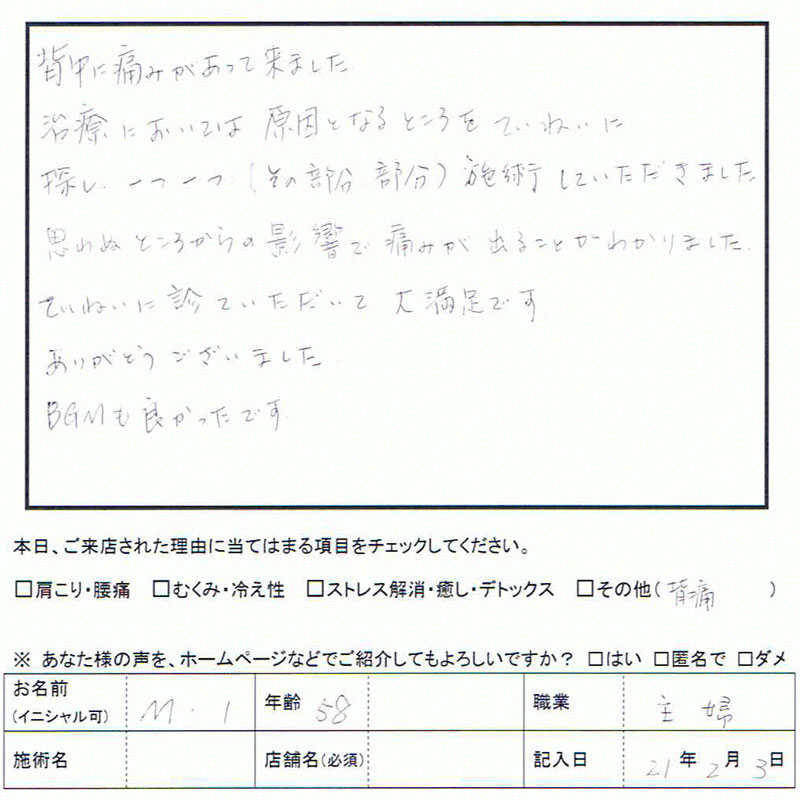 背中に痛みがあって来ました
治療においては原因となるところをていねいに
探し、一つ一つ(その部分、部分)施術していただきました
思わぬところからの影響で痛みが出ることがわかりました。
ていねいに診ていただいて大満足です
ありがとうございました
BGMも良かったです
本日、ご来店された理由に当てはまる項目をチェックしてください。
□肩こり・腰痛 □むくみ・冷え性 □ストレス解消・癒し・デトックス □その他( 背痛 )
※ あなた様の声を、ホームページなどでご紹介してもよろしいですか? □はい □匿名で □ダメ
お名前 (イニシャル可) M・I 年齢 58 職業 主婦
施術名 店舗名(必須) 記入日 21年2月3日